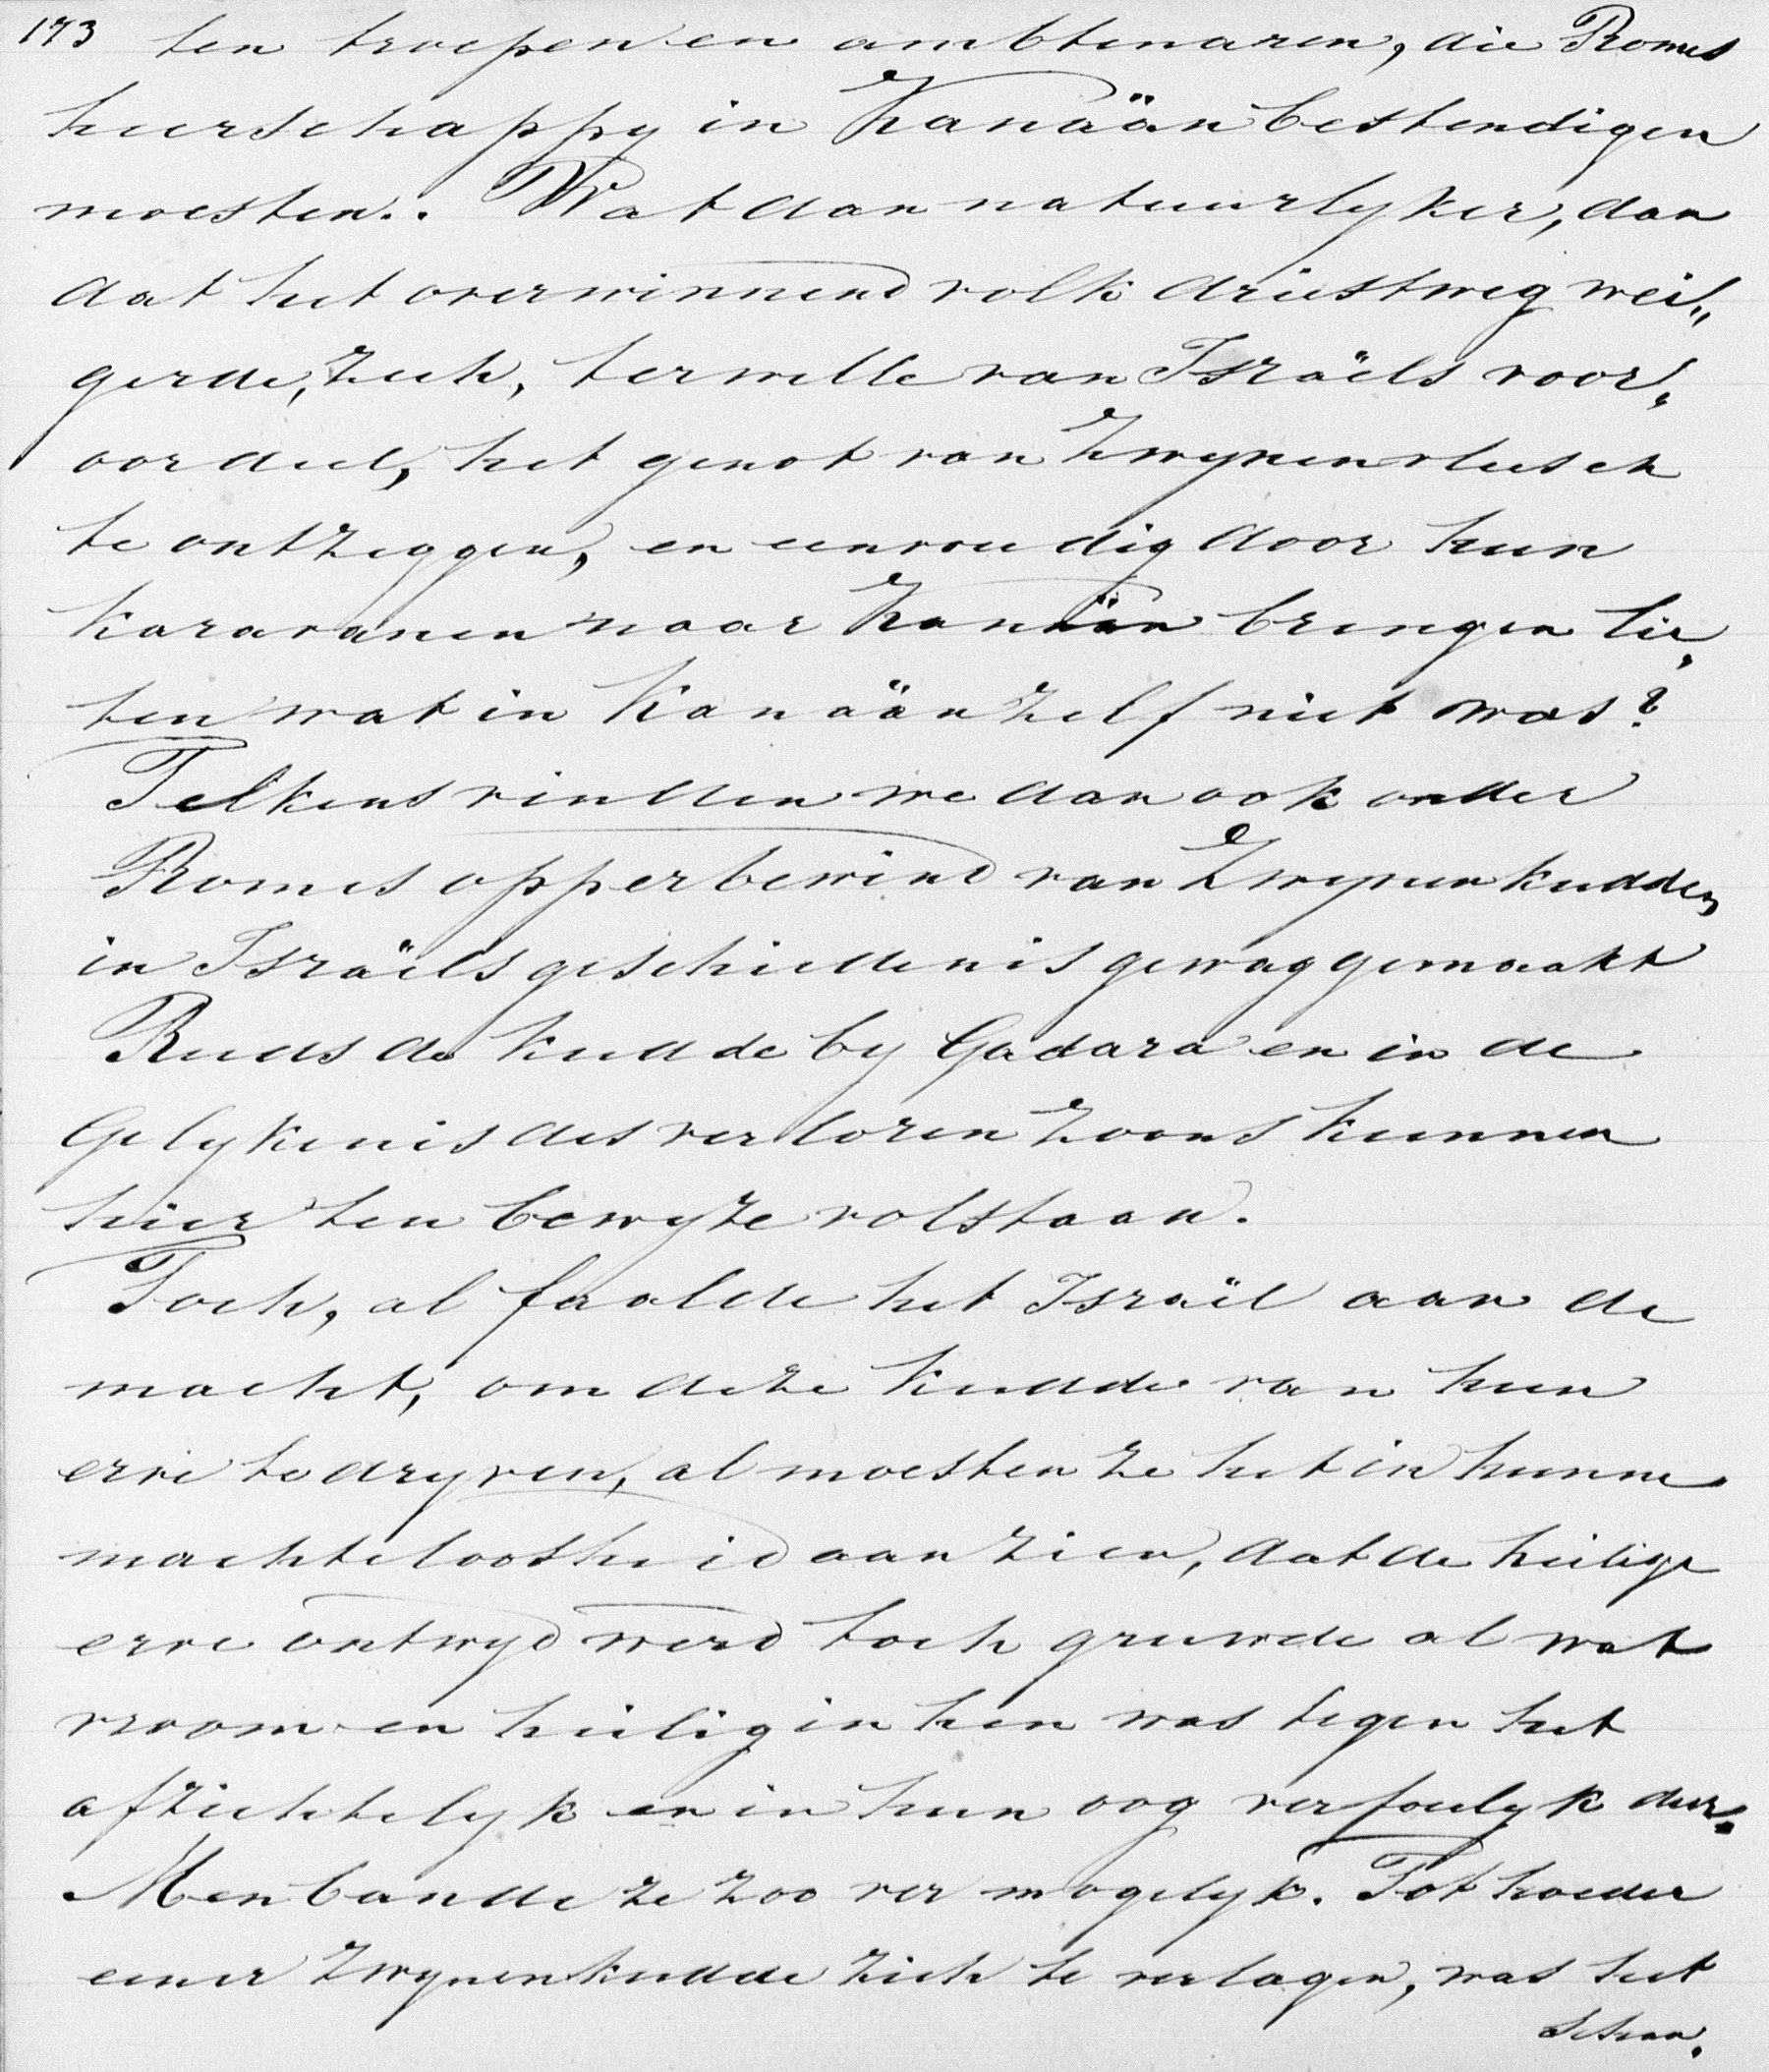 173 ten troepen en ambtenaren, die Romes
heerschappy in Kanaän bestendigen
moesten. . Wat dan natuurlyker, dan
dat het overwinnend volk driestweg wei„
gerde, zich, ter wille van Israëls voor„
oordeel, het genot van zwynenvleesch
te ontzeggen, en eenvoudig door hun
karavanen naar Kanaän brengen lie„
ten wat in Kanaän zelf niet was?
Telkens vinden we dan ook onder
Romes opperbewind van Zwynenkudden
in Israëls geschiedenis gewag gemaakt
Reeds de kudde by Gadara en in de
Gelykenis des verloren zoons kunnen
hier ten bewyze volstaan.
Toch, al faalde het Israël aan de
macht, om deze kudde van hun
erve te dryven, al moesten ze het in hunne
machteloosheid aanzien, dat de heilige
erve ontwyd werd toch gruwde al wat
vroom en heilig in hen was tegen het
afzichtelyk en in hun oog verfoeilyk dier.
Men bande ze zoo ver mogelyk. Tot hoeder
eener zwynenkudde zich te verlagen, was het
schan„